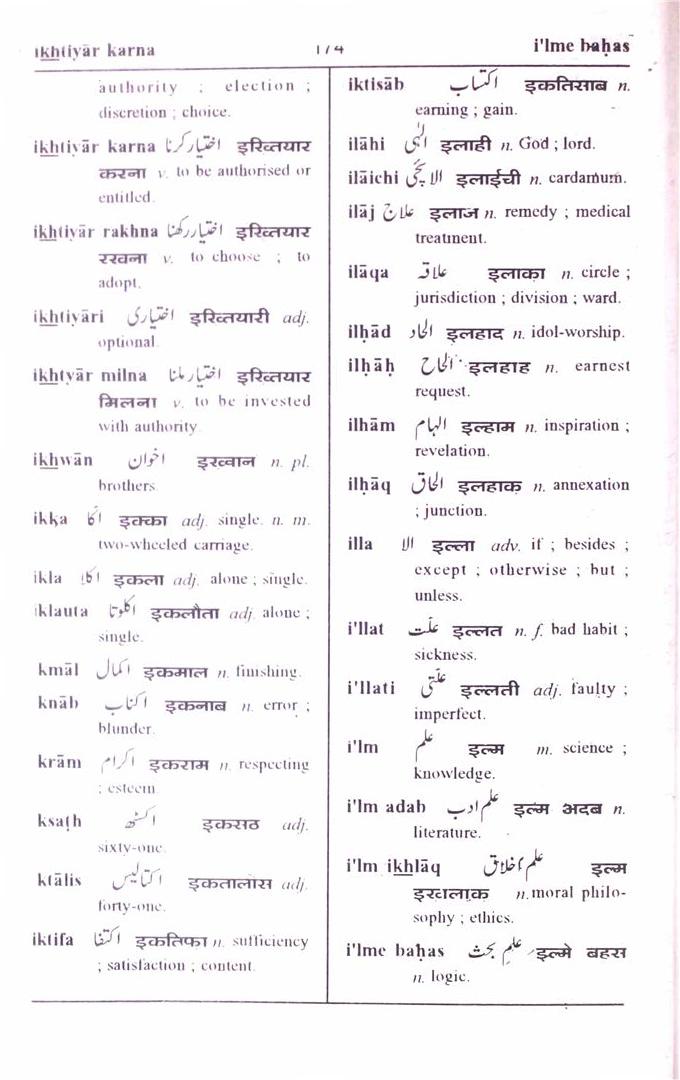 ikhtiyār karna 174 i'lme baḥas
authority ; election ;
discretion ; choice.
ikhtiyār karna اختیار کرنا इख्तियार
करना v. to be authorised or
entitled.
ikhtiyār rakhna اختیار رکھنا इख्तियार
रखना v. to choose ; to
adopt.
ikhtiyāri اختیاری इख्तियारी adj.
optional.
ikhtyār milna اختیار ملنا इख्तियार
मिलना v. to be invested
with authority.
ikhwān اخوان इख्वान n. pl.
brothers.
ikka اکا इक्का adj. single. n. m.
two-wheeled carriage.
ikla اکلا इकला adj. alone ; single.
iklauta اکلوتا इकलौता adj. alone ;
single.
kmāl اکمال इकमाल n. finishing.
knāb اکناب इकनाब n. error ;
blunder.
krām اکرام इकराम n. respecting
; esteem.
ksaṭh اکسٹھ इकसठ adj.
sixty-one.
ktālis اکتالیس इकतालीस adj.
forty-one.
iktifa اکتفا इकतिफा n. sufficiency
; satisfaction ; content.
iktisāb اکتساب इकतिसाब n.
earning ; gain.
ilāhi الٰہی इलाही n. God ; lord.
ilāichi الائچی इलाईची n. cardamum.
ilāj علاج इलाज n. remedy ; medical
treatment.
ilāqa علاقہ इलाक़ा n. circle ;
jurisdiction ; division ; ward.
ilḥād الحاد इलहाद n. idol-worship.
ilḥāḥ الحاح इलहाह n. earnest
request.
ilhām الہام इल्हाम n. inspiration ;
revelation.
ilḥāq الحاق इलहाक़ n. annexation
; junction.
illa الا इल्ला adv. if ; besides ;
except ; otherwise ; but ;
unless.
i'llat علّت इल्लत n. f. bad habit ;
sickness.
i'llati علّتی इल्लती adj. faulty ;
imperfect.
i'lm علم इल्म m. science ;
knowledge.
i'lm adab علم ادب इल्म अदब n.
literature.
i'lm ikhlāq علم اخلاق इल्म
इख़लाक़ n. moral philo-
sophy ; ethics.
i'lme baḥas علم بحث इल्मे बहस
n. logic.